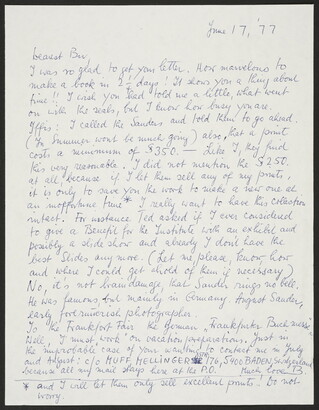 June 17, '77
Dearest Bu,
I was so glad to get your letter. How marvelous to
make a book in 2½ days! It shows you a thing about
time!! I wish you had told me a little, what went
on with the seals, but I know how busy you are.
Effis: I called the Sanders and told them to go ahead.
(In Summer won't be much going) also, that a print
costs a minimum of $350.— Luke I, they find
this very reasonable. I did not mention the $250.
at all, because if I let them sell any of my prints,
it is only to save you the work to make a new one at
an inopportune time* I really want to have this collection
intact. For instance Ted asked if I ever considered
to give a Benefit for the Institute with an exhibit and
possibly a slide show and already I don't have the
best Slides any more. (Let me please, know, how
and where I could get ahold of them if necessary)
No, it's not braindamage, that Sander rings no bell.
He was famous, but mainly in Germany. August Sander,
early documentarish photographer.
To the Frankfort Fair the German "Frankfurter Buchmesse"
Well, I must work on vacation preparations. Just in
the improbable case of your wanting to contact me in July
and August: c/o HUFF, MELLINGER 176, 5400 BADEN, Switzerland
because all my mail stays here at the P.O. Much Love B
* and I will let them only sell excellent prints! Do not
worry.